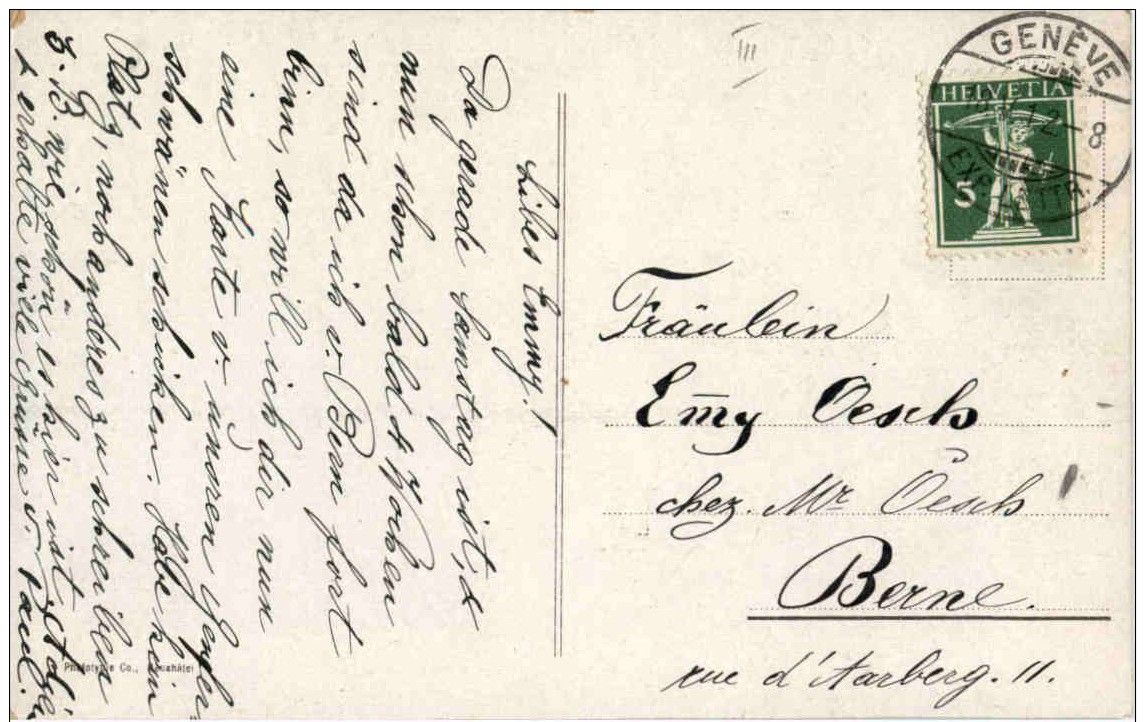 Libes Emmy!
Da gerade Samstag ist, &
nun schon bald 4 Wochen
sind da ich v. Bern fort
binn, so will ich dir nun
eine Karte v. unseren Genfer-
schwänen schicken. Habe kein
Platz, noch anderes zu schreiben
z. B. wie schön es hier ist,
& erhalte viele Grüsse v. Paul.
III
GENÈVE
HELVETIA
5
12-8
EXP. LETTR.
Fräulein
Em̅y Oesch
chez. Mr Oesch
Berne.
rue d'Aarberg. 11.
Phototypie Co., Neuchâtel